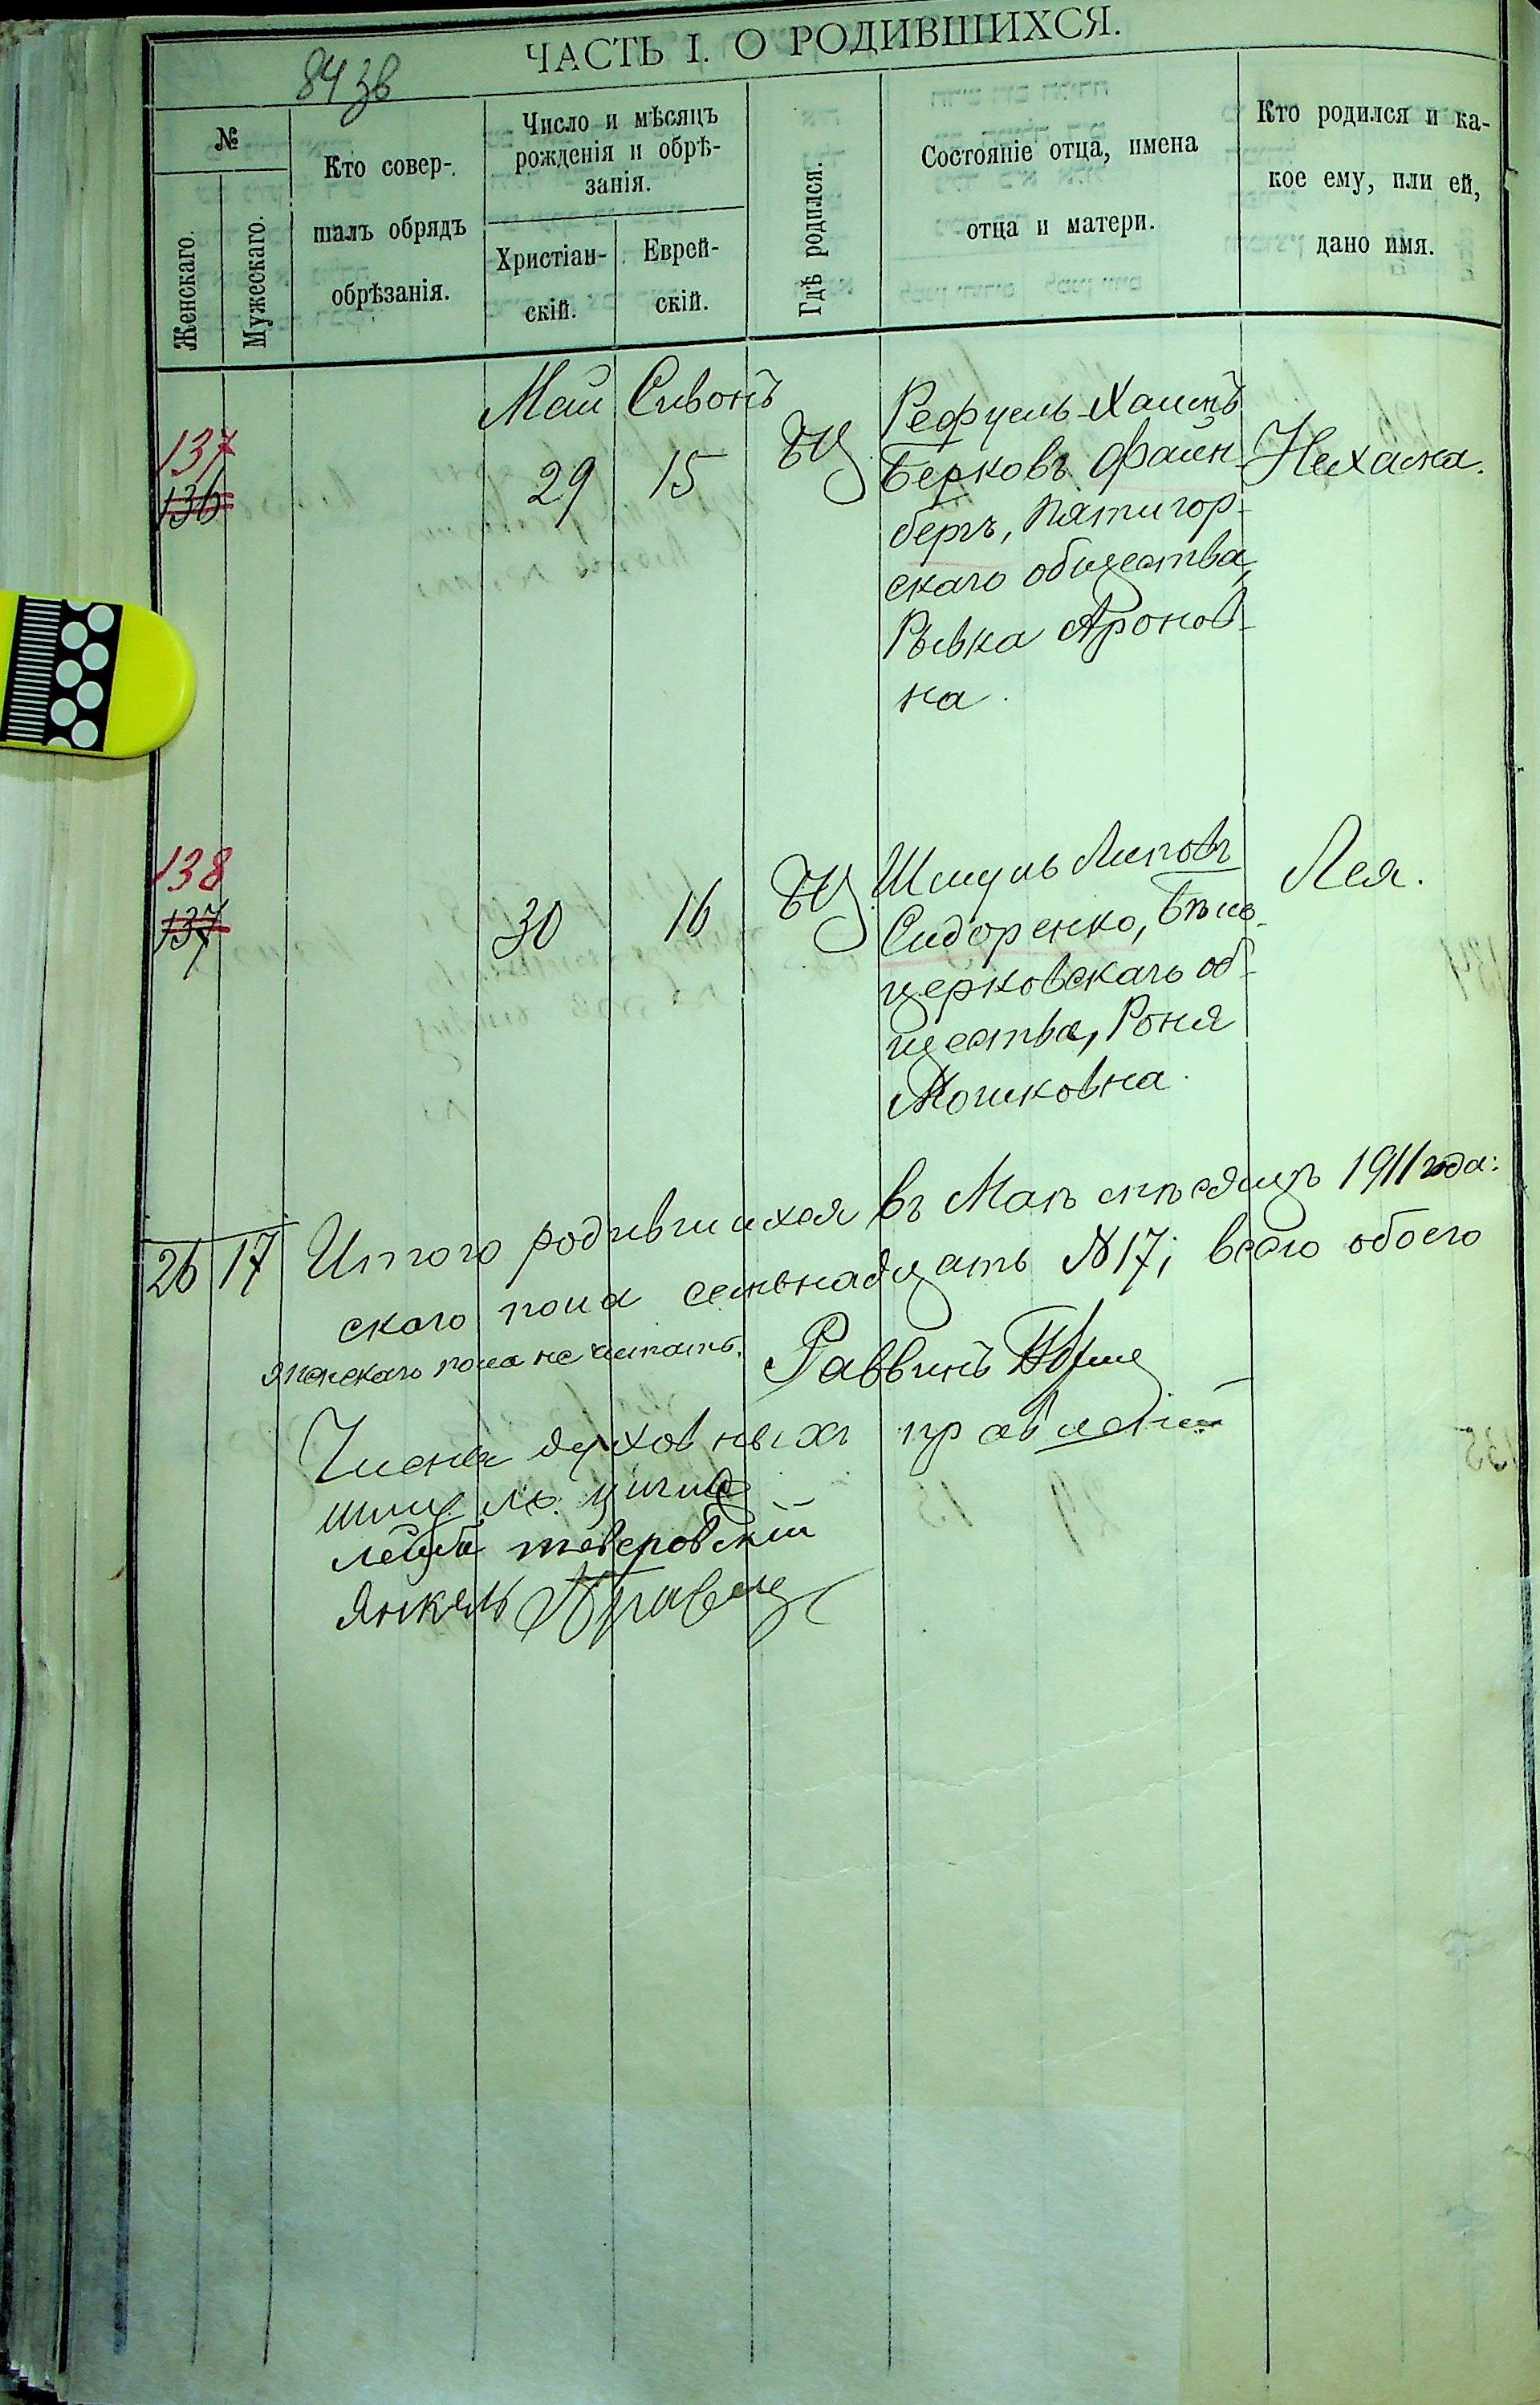 ЧАСТЬ I. О РОДИВШИХСЯ.
84 зв
№
Женскаго.
Мужескаго.
Кто совер-
шалъ обрядъ
обрѣзанія.
Число и мѣсяцъ
рожденія и обрѣ-
занія.
Христіан-
скій.
Еврей-
скій.
Гдѣ родился.
Состояніе отца, имена
отца и матери.
Кто родился и ка-
кое ему, или ей,
дано имя.
Май Сивонъ
137
136
29 15 БЦ
Рефуель-Хаимъ
Берковъ Файн-
бергъ, Пятигор-
скаго общества,
Рывка Аронов-
на.
Нехама.
138
137
30 16 БЦ
Шмуль Липовъ
Сидоренко, Бѣло-
церковскаго об-
щества, Роня
Мошковна.
Лея.
26 17 Итого родившихся въ Маѣ мѣсяцѣ 1911 года:
скаго пола семьнадцать №17; всего обоего
Женскаго пола не читать. Раввинъ
Члены духовныхъ правленій
лейб тверовскій
Янкель